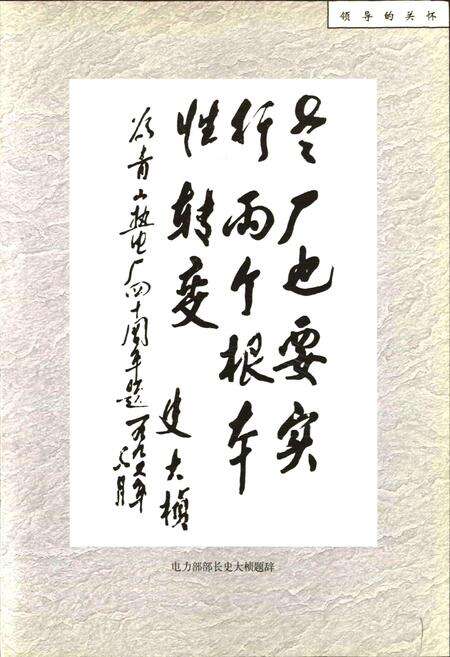 领导的关怀
老厂也要实
行两个根本
性转变
史大桢
为青山热电厂四十周年题 一九九六年
月
电力部部长史大桢题辞